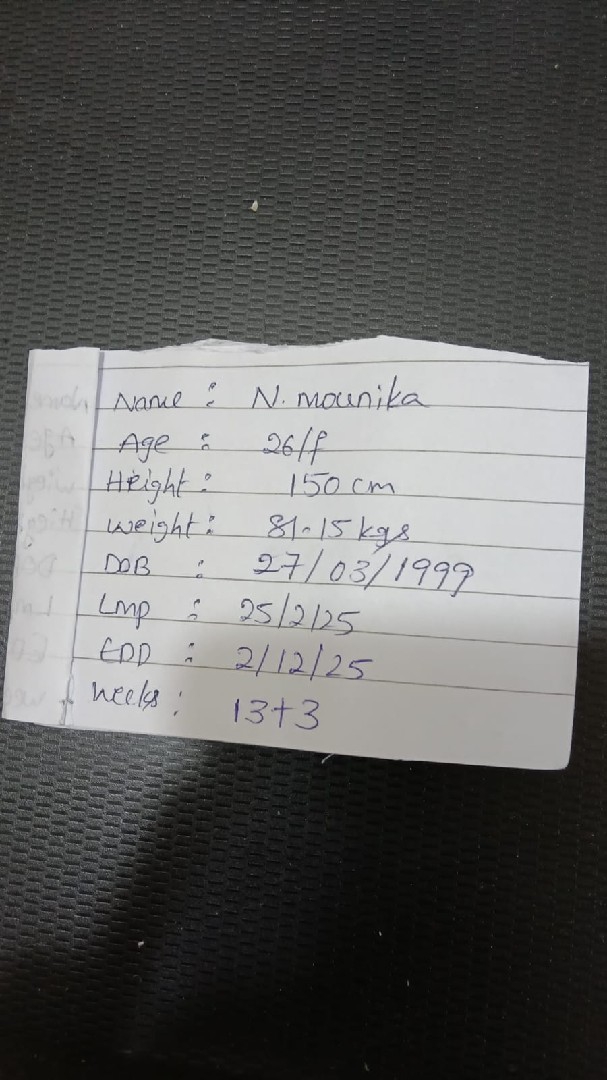 Name : N. mounika
Age : 26/f
Height : 150 cm
weight : 81.15 kgs
DOB : 27/03/1999
Lmp : 25/2/25
EDD : 2/12/25
weeks : 13+3